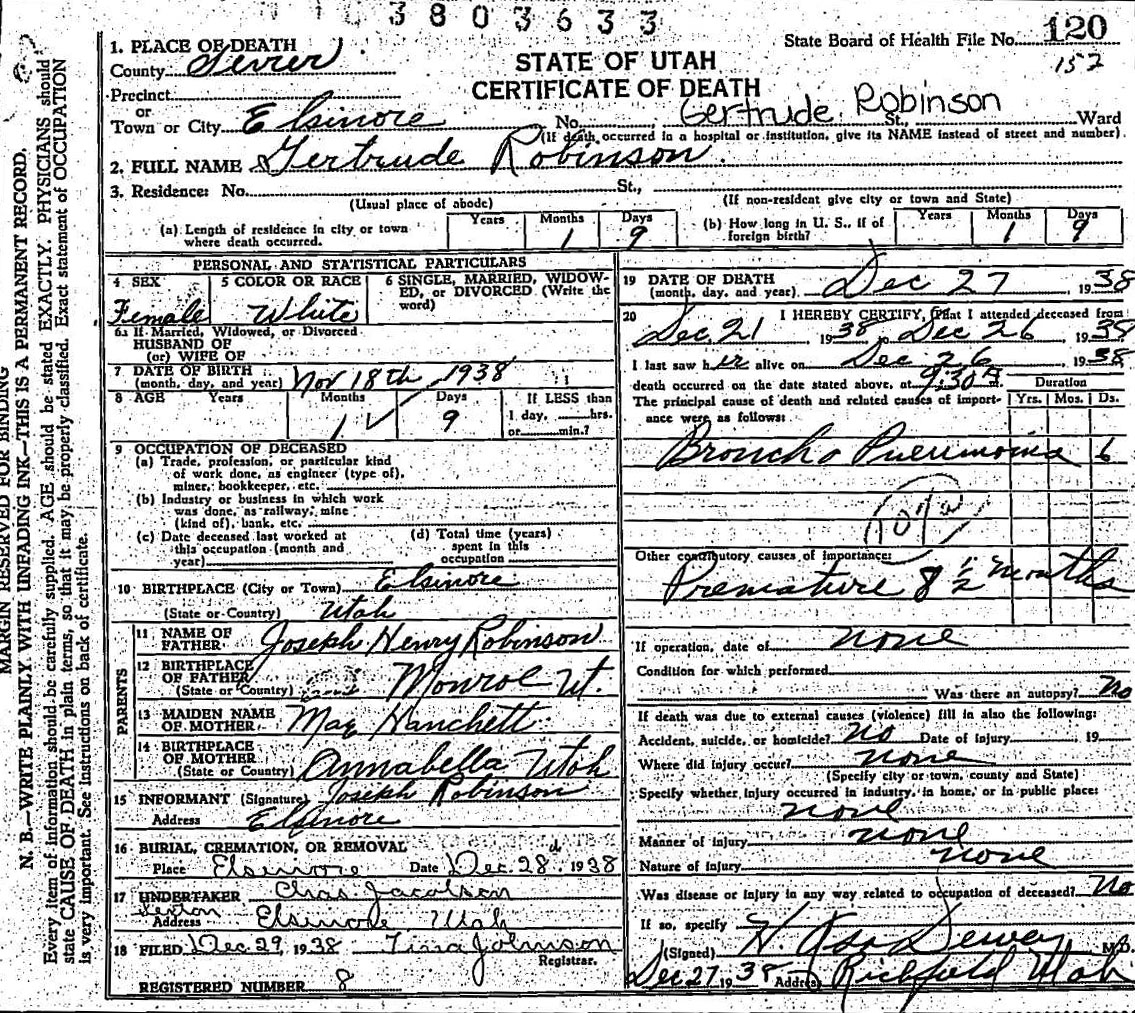 3803633
State Board of Health File No. 120
152
STATE OF UTAH
CERTIFICATE OF DEATH
1. PLACE OF DEATH
County Sevier
Precinct
or
Town or City Elsinore No. Gertrude Robinson St., Ward
(If death occurred in a hospital or institution, give its NAME instead of street and number)
2. FULL NAME Gertrude Robinson
3. Residence: No. St.,
(Usual place of abode) (If non-resident give city or town and State)
(a) Length of residence in city or town where death occurred. Years Months 1 Days 9
(b) How long in U. S., if of foreign birth? Years Months 1 Days 9
PERSONAL AND STATISTICAL PARTICULARS
4 SEX Female
5 COLOR OR RACE White
6 SINGLE, MARRIED, WIDOWED, or DIVORCED (Write the word)
6a If Married, Widowed, or Divorced
HUSBAND OF
(or) WIFE OF
7 DATE OF BIRTH
(month, day, and year) Nov 18th, 1938
8 AGE Years Months 1 Days 9 If LESS than
1 day, hrs.
or min.?
9 OCCUPATION OF DECEASED
(a) Trade, profession, or particular kind
of work done, as engineer (type of),
miner, bookkeeper, etc.
(b) Industry or business in which work
was done, as railway, mine
(kind of), bank, etc.
(c) Date deceased last worked at
this occupation (month and
year)
(d) Total time (years)
spent in this
occupation
10 BIRTHPLACE (City or Town) Elsinore
(State or Country) Utah
PARENTS
11 NAME OF
FATHER Joseph Henry Robinson
12 BIRTHPLACE
OF FATHER
(State or Country) Monroe Ut.
13 MAIDEN NAME
OF MOTHER May Hanchett
14 BIRTHPLACE
OF MOTHER
(State or Country) Annabella Utah
15 INFORMANT (Signature) Joseph Robinson
Address Elsinore
16 BURIAL, CREMATION, OR REMOVAL
Place Elsinore Date Dec. 28 1938
17 UNDERTAKER Chas. Jacobson
Sexton
Address Elsinore Utah
18 FILED Dec 29, 1938 Tina Johnson
Registrar.
REGISTERED NUMBER 8
19 DATE OF DEATH
(month, day, and year) Dec 27 1938
20 I HEREBY CERTIFY, That I attended deceased from
Dec. 21, 1938 to Dec 26, 1938
I last saw her alive on Dec 26, 1938
death occurred on the date stated above, at 9:30 A.
Duration
The principal cause of death and related causes of importance were as follows: Yrs. Mos. Ds.
Broncho Pneumonia 6
107a
Other contributory causes of importance:
Premature 8 1/2 months
If operation, date of none
Condition for which performed
Was there an autopsy? No
If death was due to external causes (violence) fill in also the following:
Accident, suicide, or homicide? No Date of injury 19
Where did injury occur? none
(Specify city or town, county and State)
Specify whether injury occurred in industry, in home, or in public place:
none
Manner of injury none
Nature of injury none
Was disease or injury in any way related to occupation of deceased? No
If so, specify
(Signed) H. Asa Dewey M.D.
Dec 27 1938 Address Richfield Utah
MARGIN RESERVED FOR BINDING
N. B.—WRITE PLAINLY WITH UNFADING INK—THIS IS A PERMANENT RECORD.
Every item of information should be carefully supplied. AGE should be stated EXACTLY. PHYSICIANS should
state CAUSE OF DEATH in plain terms, so that it may be properly classified. Exact statement of OCCUPATION
is very important. See instructions on back of certificate.